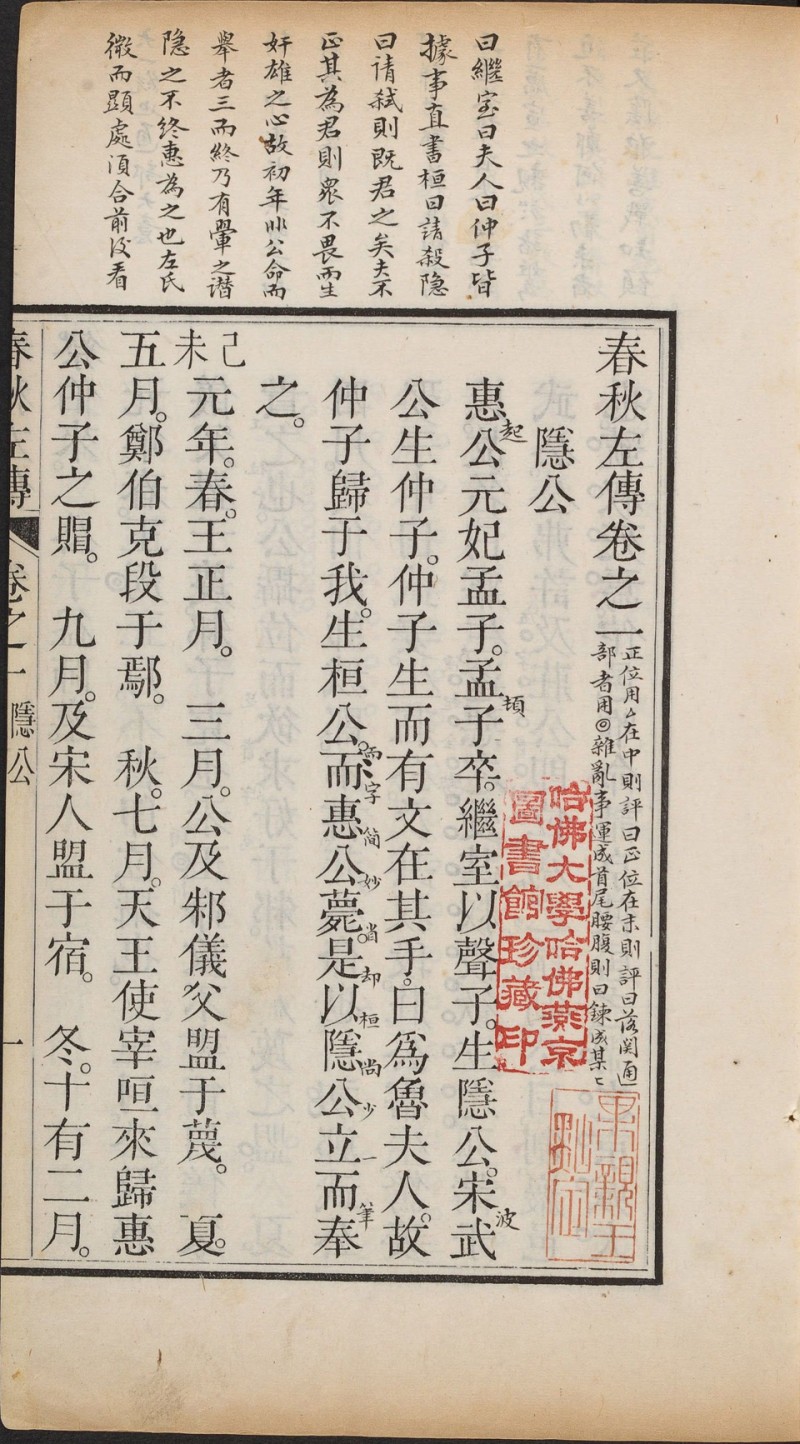 曰繼室曰夫人曰仲子皆
據事直書桓曰請殺隐
曰请弑則既君之矣夫不
正其為君則衆不畏而生
奸雄之心故初年非公命而
舉者三而終乃有翬之譖
隐之不终惠為之也左氏
微而顕處須合前後看
春秋左傳卷之一
正位用△在中則評曰正位在末則評曰落関通
部者用◎雜亂事運成首尾腰腹則曰鍊成某〻
隱公
惠公元妃孟子。孟子卒。繼室以聲子。生隱公。宋武
起
頓
波
公生仲子。仲子生而有文在其手。曰爲魯夫人。故
仲子歸于我。生桓公。而惠公薨。是以隱公立而奉
而字简妙省却桓尚少一筆
之。
己未
元年。春。王正月。 三月。公及邾儀父盟于蔑。 夏。
五月。鄭伯克段于鄢。 秋。七月。天王使宰咺來歸惠
公仲子之賵。 九月。及宋人盟于宿。 冬。十有二月。
春秋左傳 卷之一 隱公 一
哈佛大學哈佛燕京
圖書館珍藏印